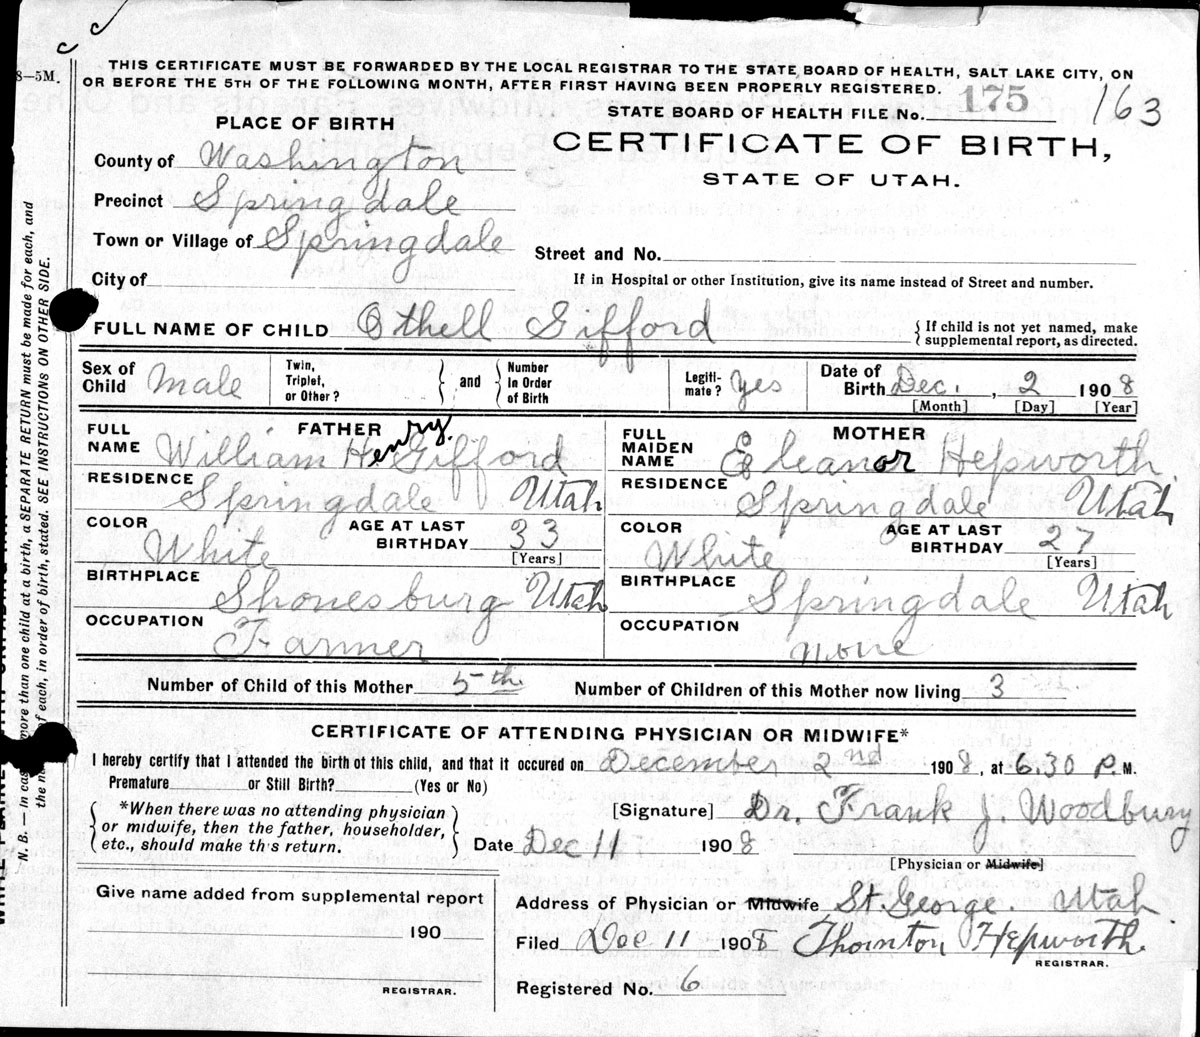 8—5M.
THIS CERTIFICATE MUST BE FORWARDED BY THE LOCAL REGISTRAR TO THE STATE BOARD OF HEALTH, SALT LAKE CITY, ON
OR BEFORE THE 5TH OF THE FOLLOWING MONTH, AFTER FIRST HAVING BEEN PROPERLY REGISTERED.
STATE BOARD OF HEALTH FILE No. 175 163
PLACE OF BIRTH
CERTIFICATE OF BIRTH,
STATE OF UTAH.
County of Washington
Precinct Springdale
Town or Village of Springdale
Street and No.
City of
If in Hospital or other Institution, give its name instead of Street and number.
FULL NAME OF CHILD Othell Gifford
{ If child is not yet named, make
supplemental report, as directed.
Sex of Child Male
Twin, Triplet, or Other?
and
Number In Order of Birth
Legiti-mate? Yes
Date of Birth Dec. , 2 1908
[Month] [Day] [Year]
FATHER
FULL NAME William Henry. Gifford
RESIDENCE Springdale Utah
COLOR White
AGE AT LAST BIRTHDAY 33
[Years]
BIRTHPLACE Shonesburg Utah
OCCUPATION Farmer
MOTHER
FULL MAIDEN NAME Eleanor Hepworth
RESIDENCE Springdale Utah
COLOR White
AGE AT LAST BIRTHDAY 27
[Years]
BIRTHPLACE Springdale Utah
OCCUPATION none
Number of Child of this Mother 5th
Number of Children of this Mother now living 3
CERTIFICATE OF ATTENDING PHYSICIAN OR MIDWIFE*
I hereby certify that I attended the birth of this child, and that it occured on December 2nd 1908, at 6.30 P.M.
Premature or Still Birth? (Yes or No)
*When there was no attending physician
or midwife, then the father, householder,
etc., should make this return.
[Signature] Dr. Frank J. Woodbury
Date Dec 11 1908
[Physician or Midwife]
Give name added from supplemental report
190
REGISTRAR.
Address of Physician or Midwife St. George. Utah
Filed Dec 11 1908 Thornton Hepworth.
REGISTRAR.
Registered No. 6
N. B. — In case more than one child at a birth, a SEPARATE RETURN must be made for each, and
of each, in order of birth, stated. SEE INSTRUCTIONS ON OTHER SIDE.